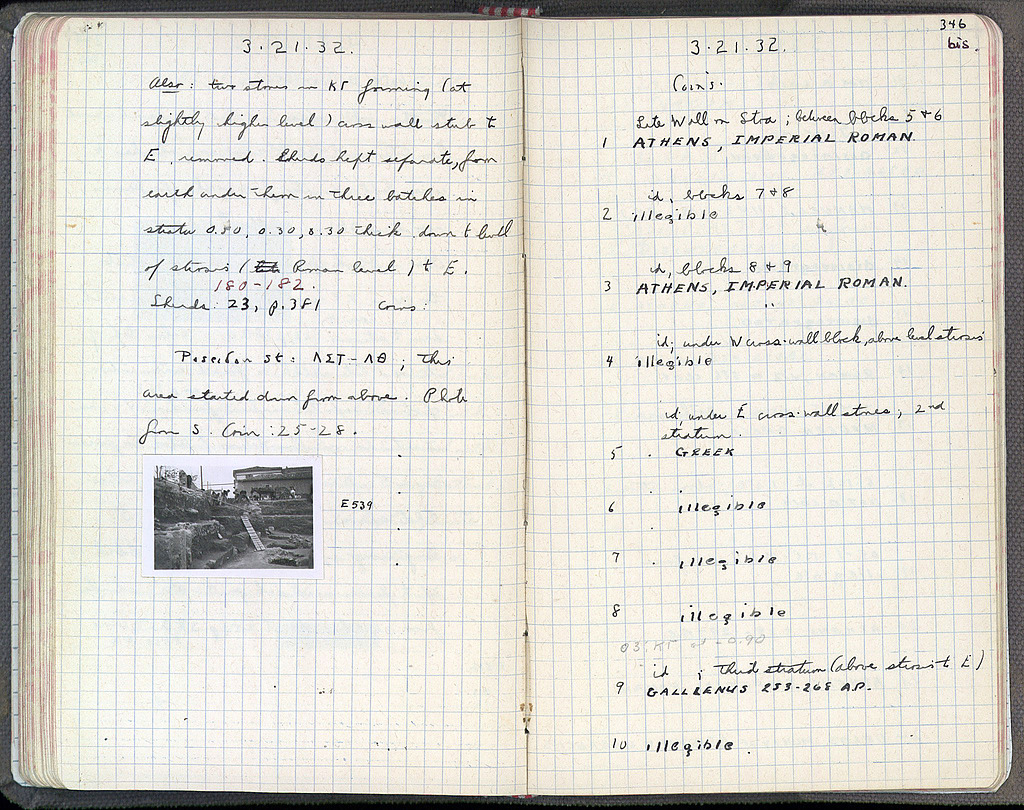 3·21·32.
Also: two stones in ΚΓ forming (at
slightly higher level) cross wall stub to
E, removed. Sherds kept separate, from
earth under them in three batches in
strata 0.80, 0.30, 0.30 thick down to level
of strosis (Roman level) to E.
180-182.
Sherds: 23, p.381 Coins:
Poseidon St: ΛΣΤ-ΛΘ; this
area started down from above. Photo
from S. Coin: 25-28.
E539
346
bis.
3·21·32.
Coins.
Late Wall on Stoa; between blocks 5 & 6
1 ATHENS, IMPERIAL ROMAN.
id, blocks 7 & 8
2 illegible
id, blocks 8 & 9
3 ATHENS, IMPERIAL ROMAN.
id; under W cross-wall block, above level strosis
4 illegible
id; under E cross-wall stones; 2nd
stratum.
5 GREEK
6 illegible
7 illegible
8 illegible
03:ΚΓ at -0.90
id ; third stratum (above strosis to E)
9 GALLIENUS 253-268 A.D.
10 illegible.